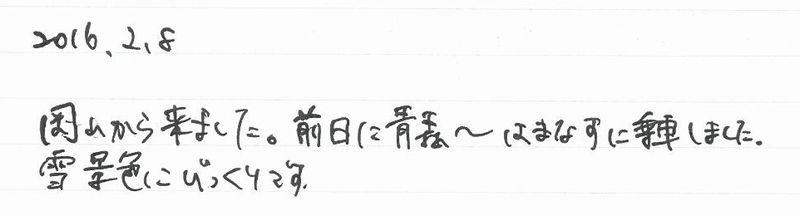 2016.2.8
岡山から来ました。前日に青森～はまなすに乗車しました。
雪景色にびっくりです。